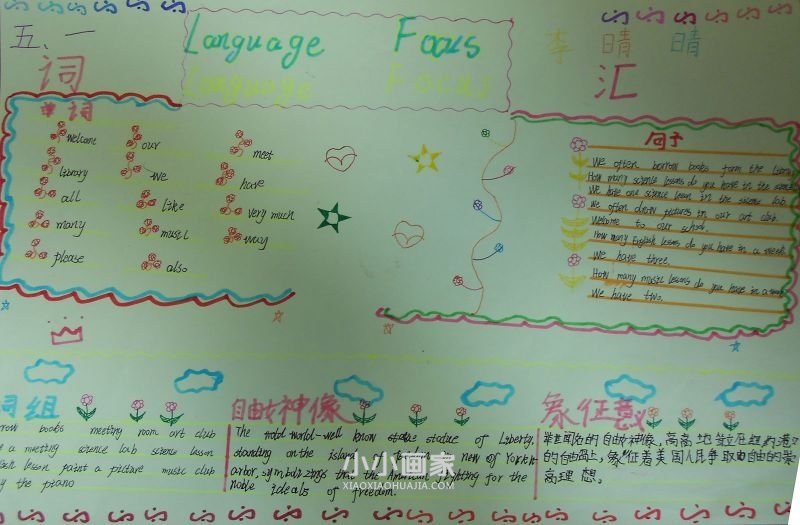 五、一
Language Focus
李晴晴
Language Focus
词汇
单词
welcome our meet
library we have
all like very much
many music
please also
句子
We often borrow books form the library
How many science lessons do you have in the
We have one science lesson in the science lab.
We often draw pictures in our art club
Welcome to our school.
How many English lessons do you have in a week
We have three.
How many music lessons do you have in a week
We have two.
词组
books meeting room art club
a meeting science lab science lesson
lesson paint a picture music club
the piano
自由女神像
The world-well know statue of Liberty,
standing on the island of new of York
symbolizings that the American fighting for the
noble ideals of freedom.
象征意义
的自由神像,高高地
的自由岛上,象征着美国人民争取自由的崇
高理想。
小小画家
XIAOXIAOHUAJIA.COM